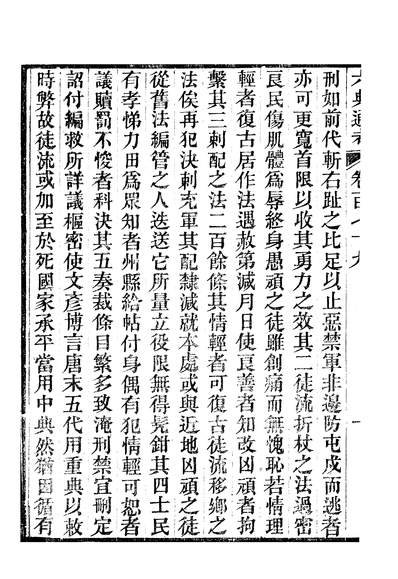 六典通考 卷一百七十九 一
刑如前代斬右趾之比足以止惡禁軍非邊防屯戍而逃者
亦可更寬首限以收其勇力之效其二徒流折杖之法過密
良民傷肌體爲辱終身愚頑之徒雖創痛而無愧恥若情理
輕者復古居作法遇赦第減月日使良善者知改凶頑者拘
繫其三刺配之法二百餘條其情輕者可復古徒流移鄉之
法俟再犯決刺充軍其配隸減就本處或與近地凶頑之徒
從舊法編管之人迭送它所量立役限無得髡鉗其四士民
有孝悌力田爲眾知者州縣給帖付身偶有犯情輕可恕者
議贖罰不悛者科決其五奏裁條目繁多致淹刑禁宜刪定
詔付編敕所詳議樞密使文彥博言唐末五代用重典以救
時弊故徒流或加至於死國家承平當用中典然猶因循有